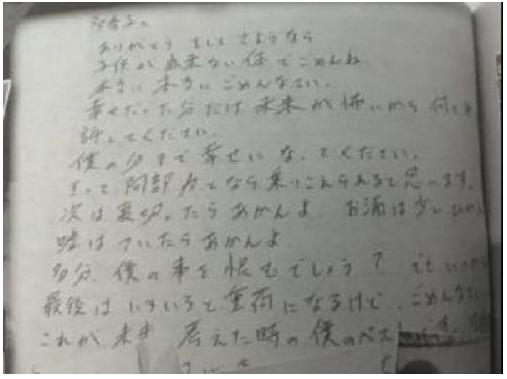 多香子へ
ありがとう そして さようなら
子供が出来ない体でごめんね
本当に本当にごめんなさい。
幸せだった分だけ未来が怖いから 何も
許してください。
僕の分まで幸せになってください。
きっと 阿部 力となら乗りこえられると思います。
次は裏切ったらあかんよ お酒は少しひかえ
嘘はついたらあかんよ
多分、僕の事を恨むでしょう?
最後は いろいろと重荷になるけど、ごめんなさい
これが 未来 考えた時の僕のベスト